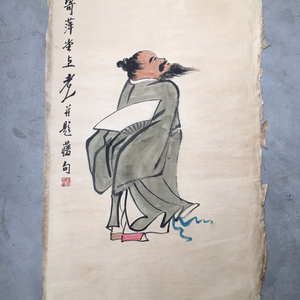 寄萍堂上老人并题旧句